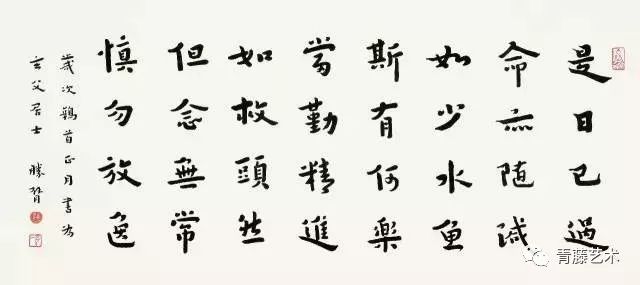 是日已過
命亦随减
如少水魚
斯有何樂
當勤精進
如救頭然
但念無常
慎勿放逸
歲次鶉首正月書為
玄父居士 勝賢
青藤艺术